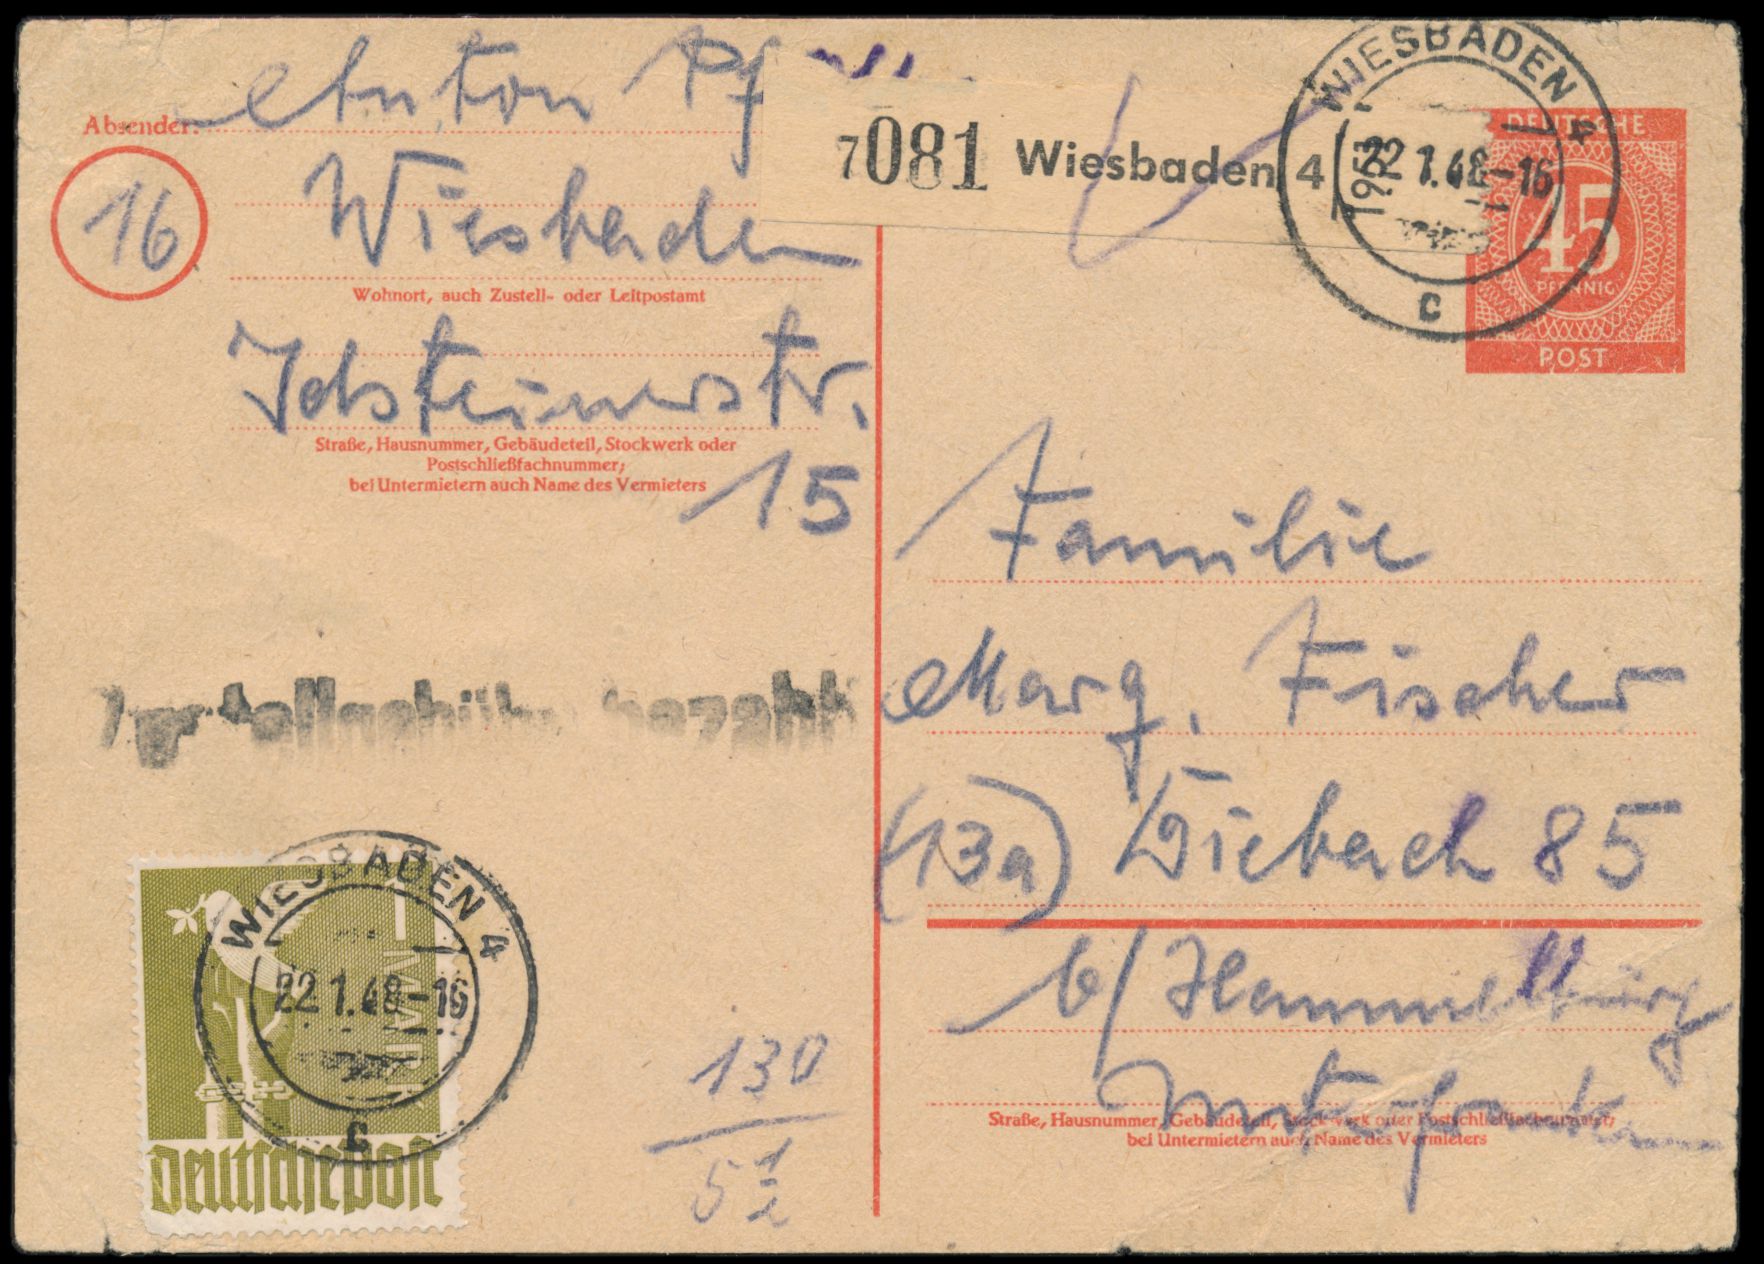 Absender:
Anton Pf
Wiesbaden
16
Wohnort, auch Zustell- oder Leitpostamt
Idsteinerstr.
Straße, Hausnummer, Gebäudeteil, Stockwerk oder
Postschließfachnummer;
bei Untermietern auch Name des Vermieters
15
7081 Wiesbaden 4
WIESBADEN 4
22.1.48-16
c
DEUTSCHE
45
PFENNIG
POST
Familie
Marg. Fischer
(13a) Diebach 85
b/ Hammelburg
Unterfranken
Straße, Hausnummer, Gebäudeteil, Stockwerk oder Postschließfachnummer;
bei Untermietern auch Name des Vermieters
Zustellgebühr bezahlt
WIESBADEN 4
22.1.48-16
c
1 MARK
Deutsche Post
130
5 1/2